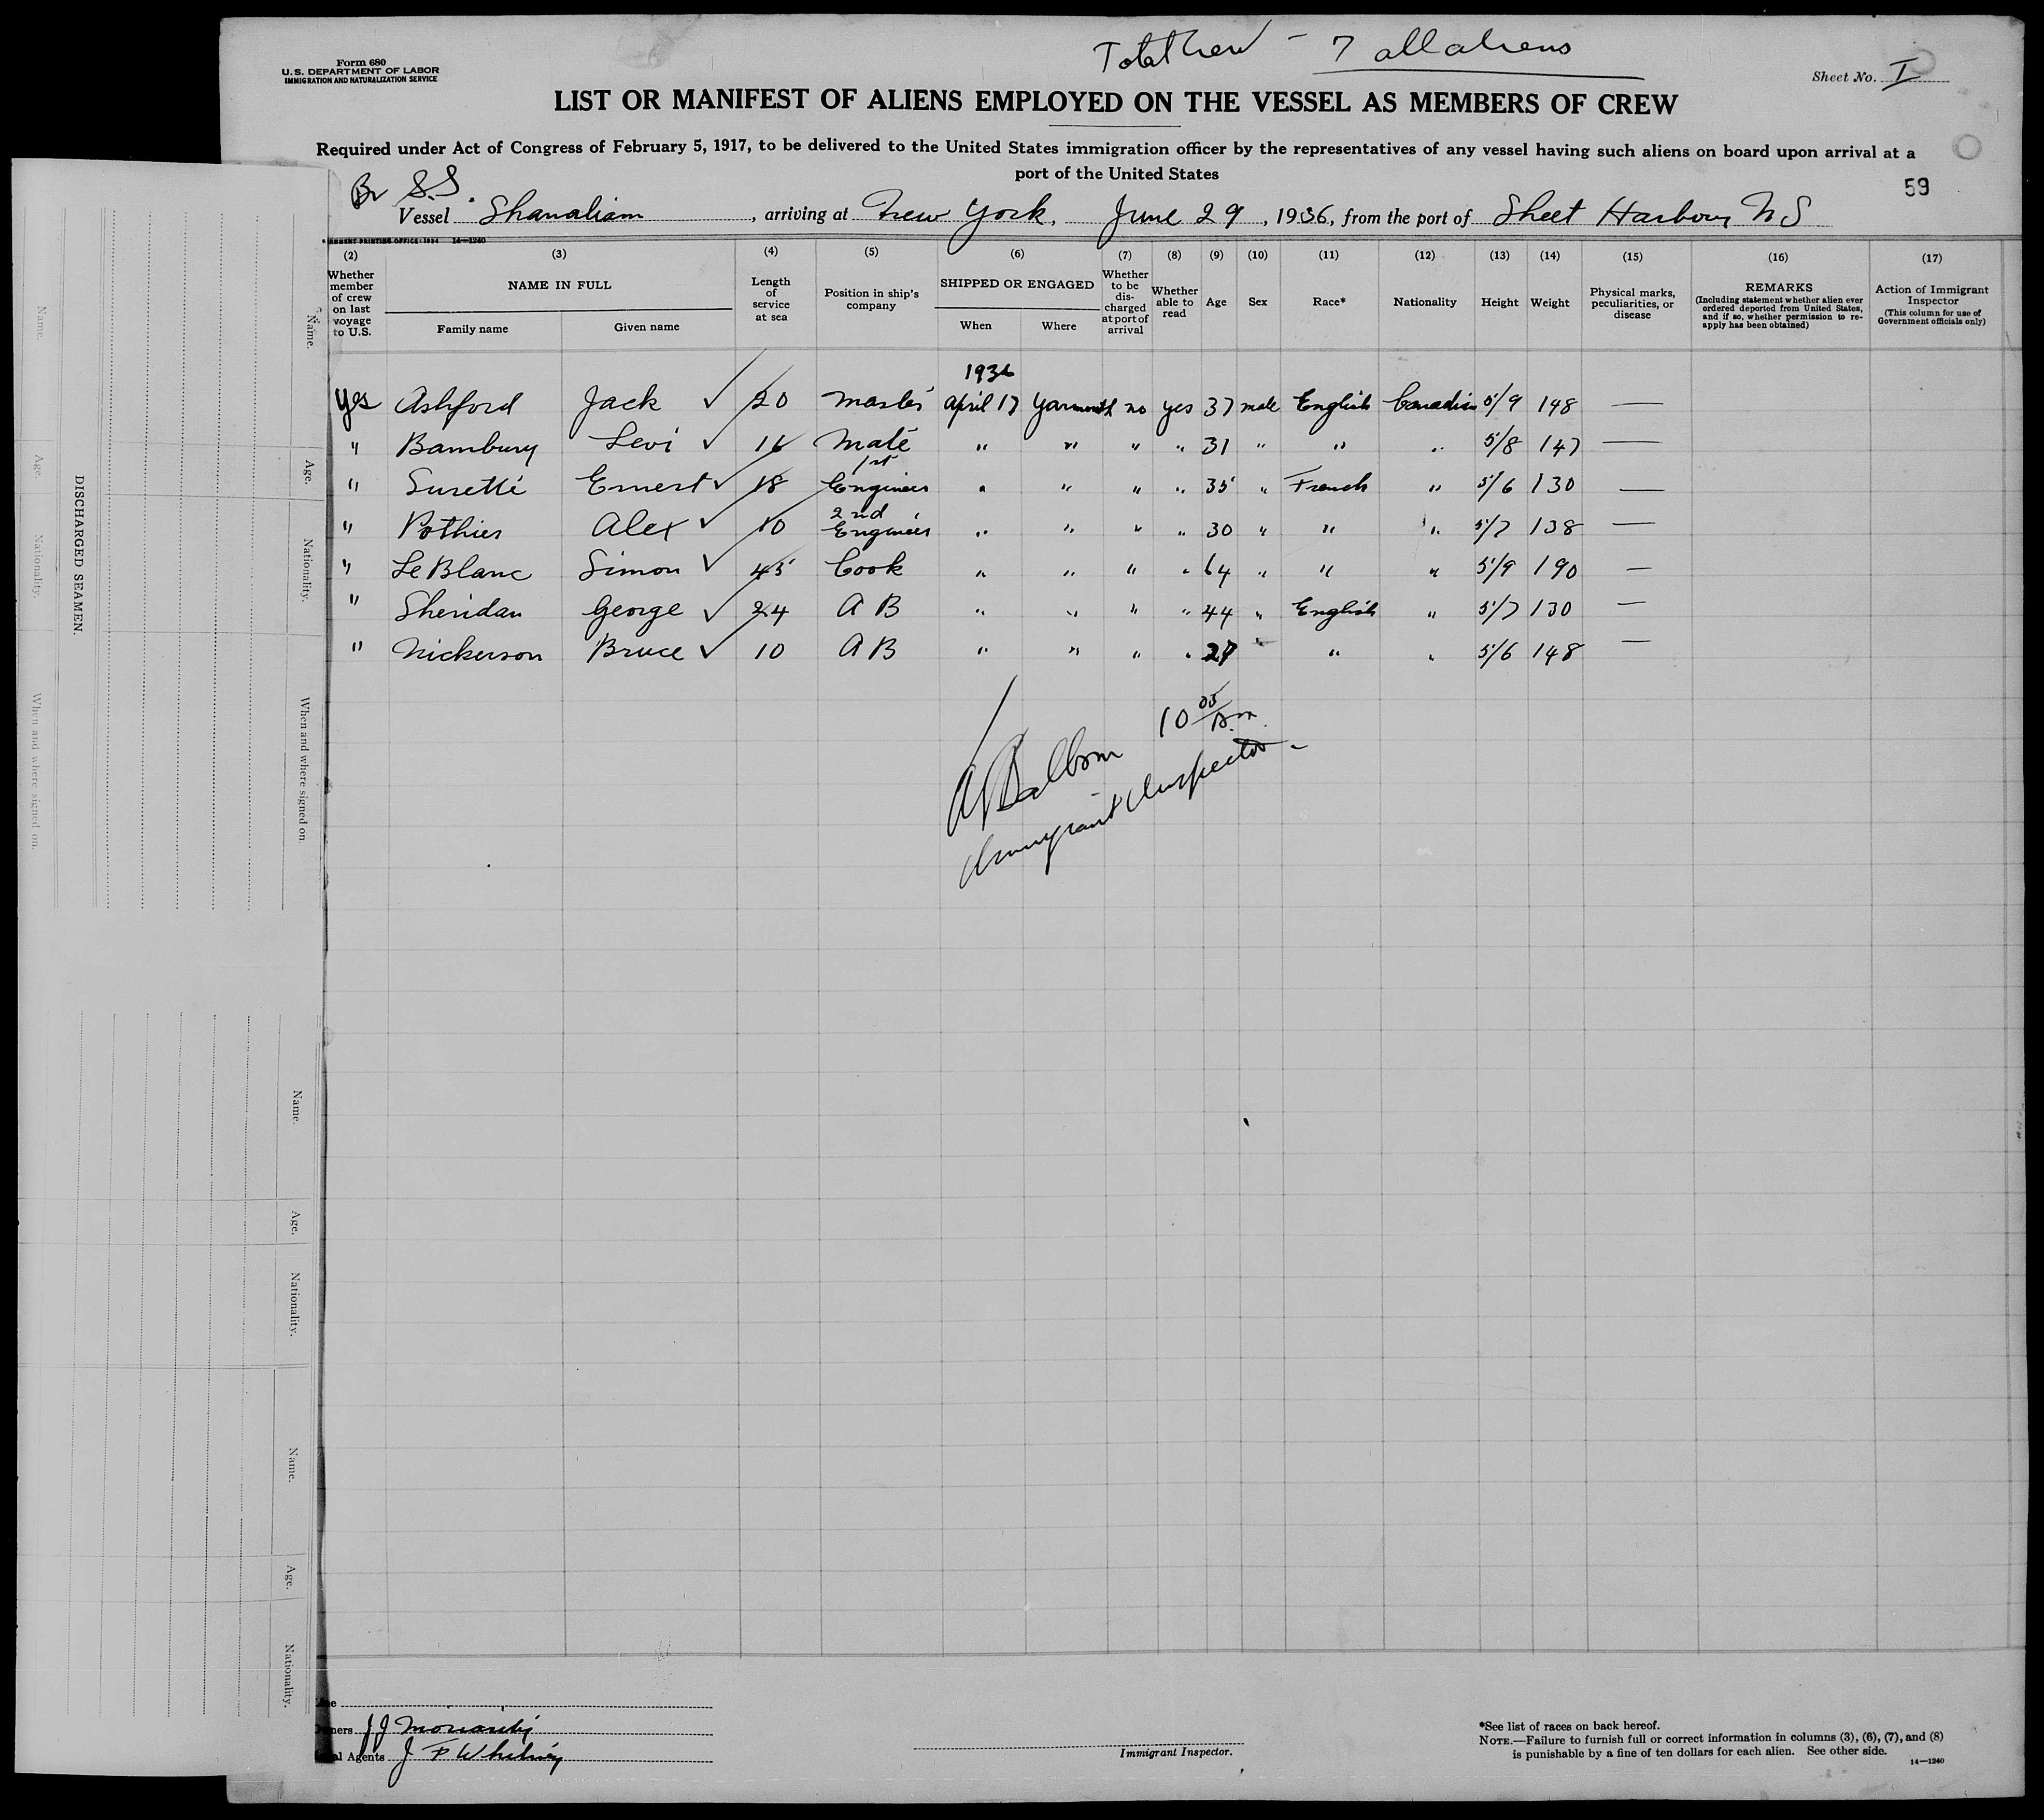 Total Crew - 7 all aliens
Form 680
U. S. DEPARTMENT OF LABOR
IMMIGRATION AND NATURALIZATION SERVICE
Sheet No. I
LIST OR MANIFEST OF ALIENS EMPLOYED ON THE VESSEL AS MEMBERS OF CREW
Required under Act of Congress of February 5, 1917, to be delivered to the United States immigration officer by the representatives of any vessel having such aliens on board upon arrival at a
port of the United States
59
Br S.S.
Vessel Shanaliam, arriving at New York, June 29, 1936, from the port of Sheet Harbour, N S
PRINTING OFFICE: 1934 14—1240
(2) (3) (4) (5) (6) (7) (8) (9) (10) (11) (12) (13) (14) (15) (16) (17)
Whether member of crew on last voyage to U.S. NAME IN FULL Length of service at sea Position in ship's company SHIPPED OR ENGAGED Whether to be discharged at port of arrival Whether able to read Age Sex Race* Nationality Height Weight Physical marks, peculiarities, or disease REMARKS (Including statement whether alien ever ordered deported from United States, and if so, whether permission to reapply has been obtained) Action of Immigrant Inspector (This column for use of Government officials only)
Family name Given name When Where
1936
Yes Ashford Jack ✓ 20 Master April 17 Yarmouth no yes 37 male English Canadian 5/9 148 —
" Bambury Levi ✓ 16 Mate " " " " 31 " " " 5/8 147 —
" Surette Ernest ✓ 18 1st Engineer " " " " 35 " French " 5/6 130 —
" Pothier Alex ✓ 10 2nd Engineer " " " " 30 " " " 5/7 138 —
" Le Blanc Simon ✓ 45 Cook " " " " 64 " " " 5/9 190 —
" Sheridan George ✓ 24 A B " " " " 44 " English " 5/7 130 —
" Nickerson Bruce ✓ 10 A B " " " " 27 " " " 5/6 148 —
10 AM
Immigrant Inspector
DISCHARGED SEAMEN.
Name.
Age.
Nationality.
When and where signed on.
Name.
Age.
Nationality.
When and where signed on.
Name.
Age.
Nationality.
Name.
Age.
Nationality.
Owners J J Moriarity
Agents J F Whitney
Immigrant Inspector.
*See list of races on back hereof.
NOTE.—Failure to furnish full or correct information in columns (3), (6), (7), and (8)
is punishable by a fine of ten dollars for each alien. See other side.
14—1240